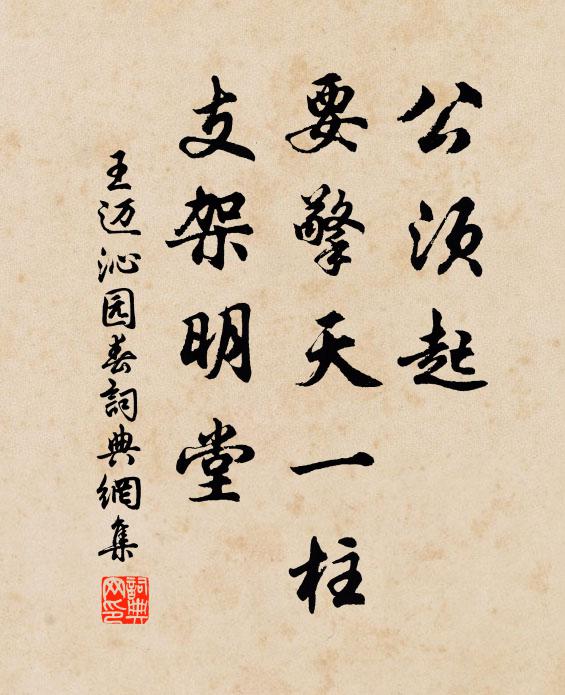 公须起
要擎天一柱
支架明堂
王迈沁园春詞典網集
詞典网印